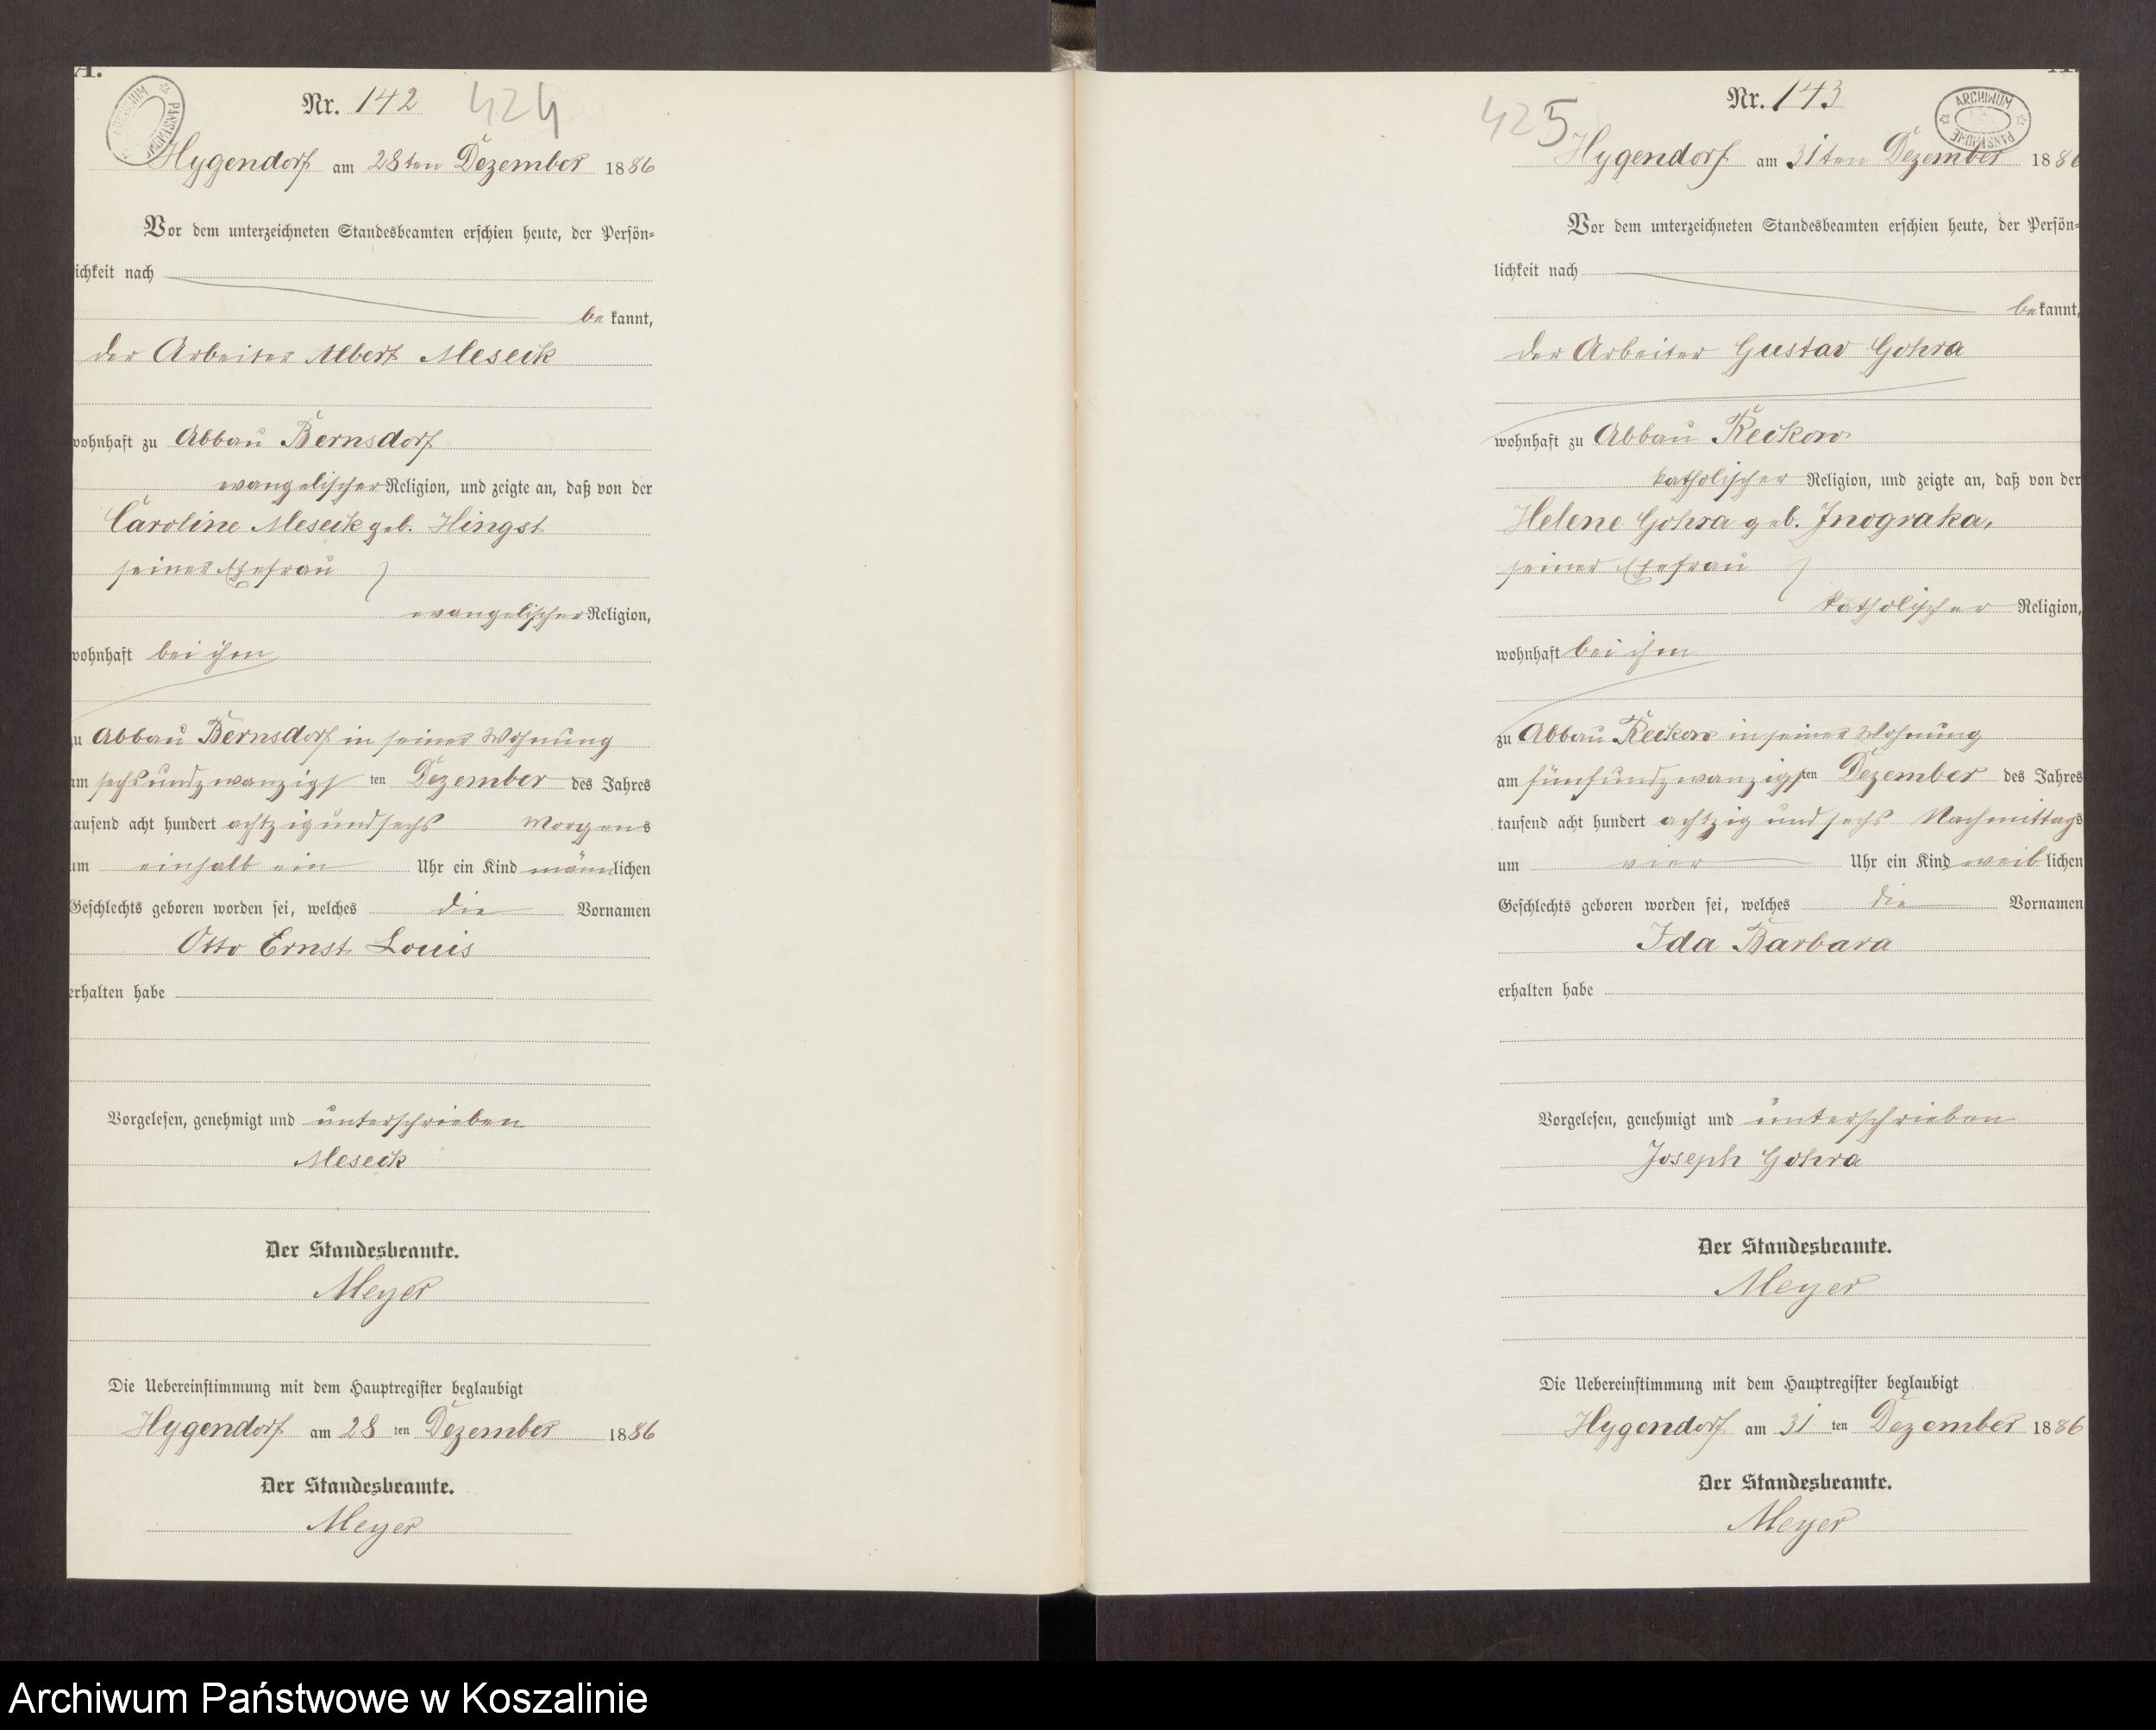 A.
Nr. 142
424
Hygendorf am 28ten Dezember 1886
Vor dem unterzeichneten Standesbeamten erschien heute, der Persön-
lichkeit nach
be kannt,
der Arbeiter Albert Meseck
wohnhaft zu Abbau Bernsdorf
evangelischer Religion, und zeigte an, daß von der
Caroline Meseck geb. Hingst
seiner Ehefrau
evangelischer Religion,
wohnhaft bei ihm
zu Abbau Bernsdorf in seiner Wohnung
am sechsundzwanzigs ten Dezember des Jahres
tausend acht hundert achtzig und sechs Morgens
um einhalb ein Uhr ein Kind männlichen
Geschlechts geboren worden sei, welches die Vornamen
Otto Ernst Louis
erhalten habe
Vorgelesen, genehmigt und unterschrieben
Meseck
Der Standesbeamte.
Meyer
Die Uebereinstimmung mit dem Hauptregister beglaubigt
Hygendorf am 28 ten Dezember 1886
Der Standesbeamte.
Meyer
Nr. 143
425
ARCHIWUM PAŃSTWOWE
Hygendorf am 31ten Dezember 1886
Vor dem unterzeichneten Standesbeamten erschien heute, der Persön-
lichkeit nach
be kannt,
der Arbeiter Gustav Gohra
wohnhaft zu Abbau Reckow
katholischer Religion, und zeigte an, daß von der
Helene Gohra geb. Jnograka,
seiner Ehefrau
katholischer Religion,
wohnhaft bei ihm
zu Abbau Reckow in seiner Wohnung
am fünfundzwanzigsten Dezember des Jahres
tausend acht hundert achtzig und sechs Nachmittags
um vier Uhr ein Kind weib lichen
Geschlechts geboren worden sei, welches die Vornamen
Ida Barbara
erhalten habe
Vorgelesen, genehmigt und unterschrieben
Joseph Gohra
Der Standesbeamte.
Meyer
Die Uebereinstimmung mit dem Hauptregister beglaubigt
Hygendorf am 31 ten Dezember 1886
Der Standesbeamte.
Meyer
Archiwum Państwowe w Koszalinie